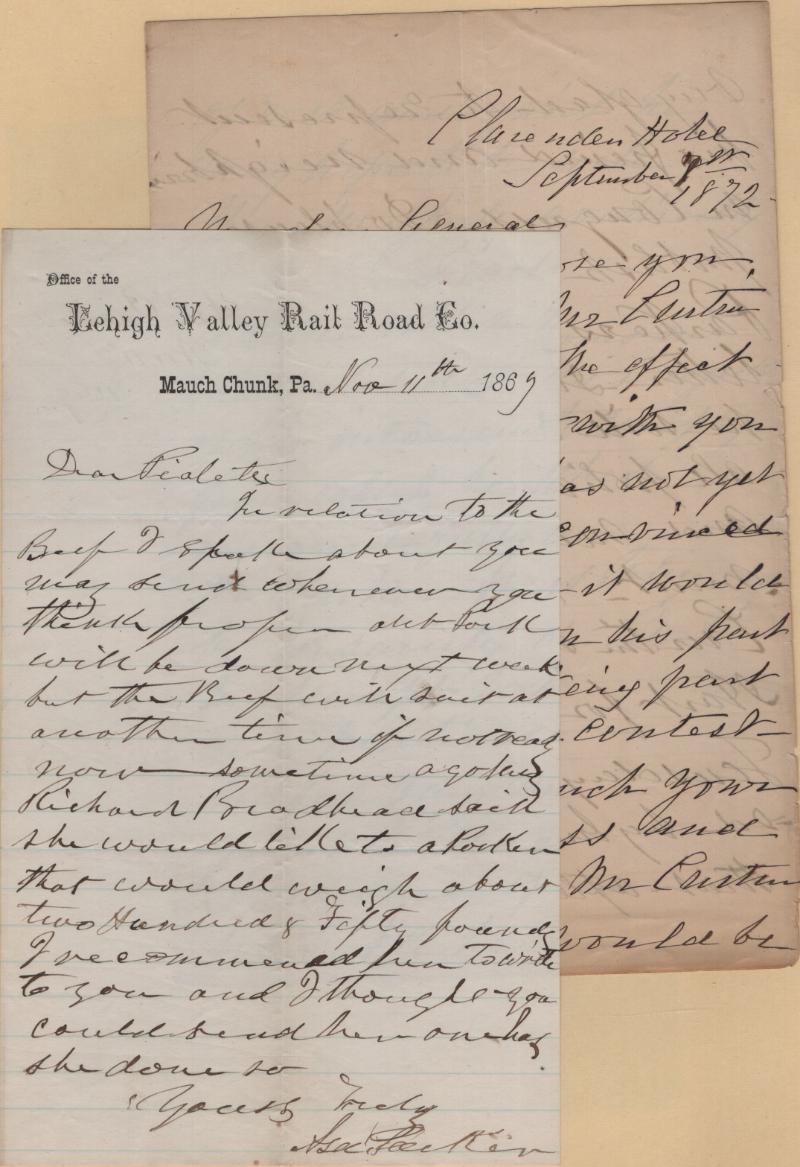 Clarendon Hotel
September 1st
1872
General
you,
Mr Curtin
the effect
with you
as not yet
convinced
it would
n his part
eing part
contest
uch your
ss and
Mr Curtin
would be
Office of the
Lehigh Valley Rail Road Co.
Mauch Chunk, Pa. Nov 11th 1869
Dear Piolette
In relation to the
Beef I spoke about you
may send whenever you
think proper
will be down next week
but the Beef will suit at
another time if not ready
now sometime ago Mrs
Richard Brodhead said
she would like to a Porker
that would weigh about
two Hundred & Fifty pounds
I recommened her to write
to you and I thought you
could send her one has
she done so
Yours Truly
Asa Packer